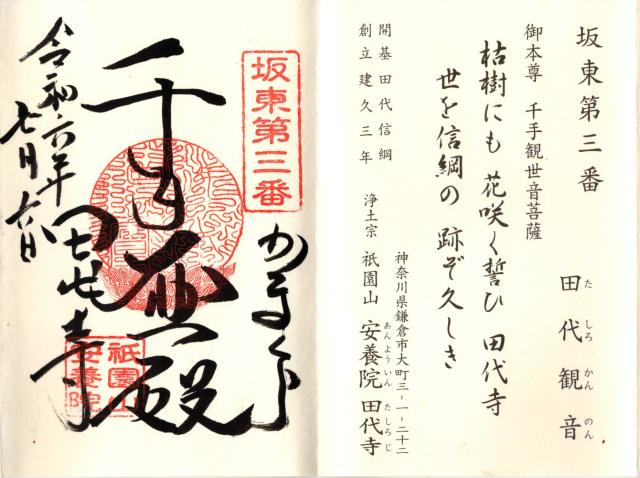 坂東第三番
田代観音
たしろかんのん
御本尊 千手観世音菩薩
枯樹にも 花咲く誓ひ 田代寺
世を信綱の 跡ぞ久しき
開基田代信綱
創立建久三年
神奈川県鎌倉市大町三-一-二十二
浄土宗 祇園山 安養院 田代寺
あんよういん たしろじ
坂東第三番
かまくら
千手典殿
田代寺
祇園山
安養院
令和六年
七月